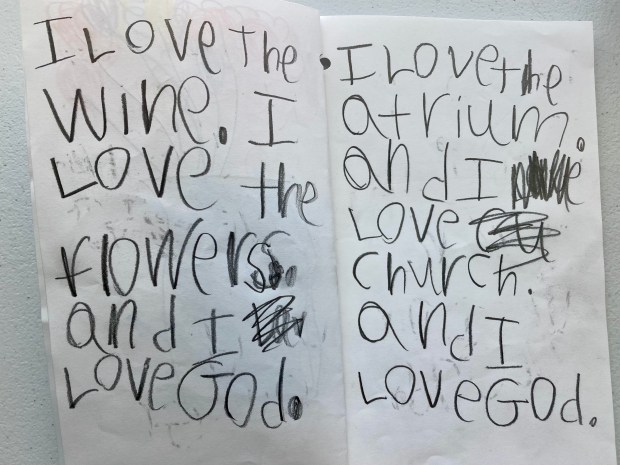 I Love the
wine. I
Love the
flowers.
and I
Love God.
I Love the
atrium.
and I
Love
church.
and I
Love God.